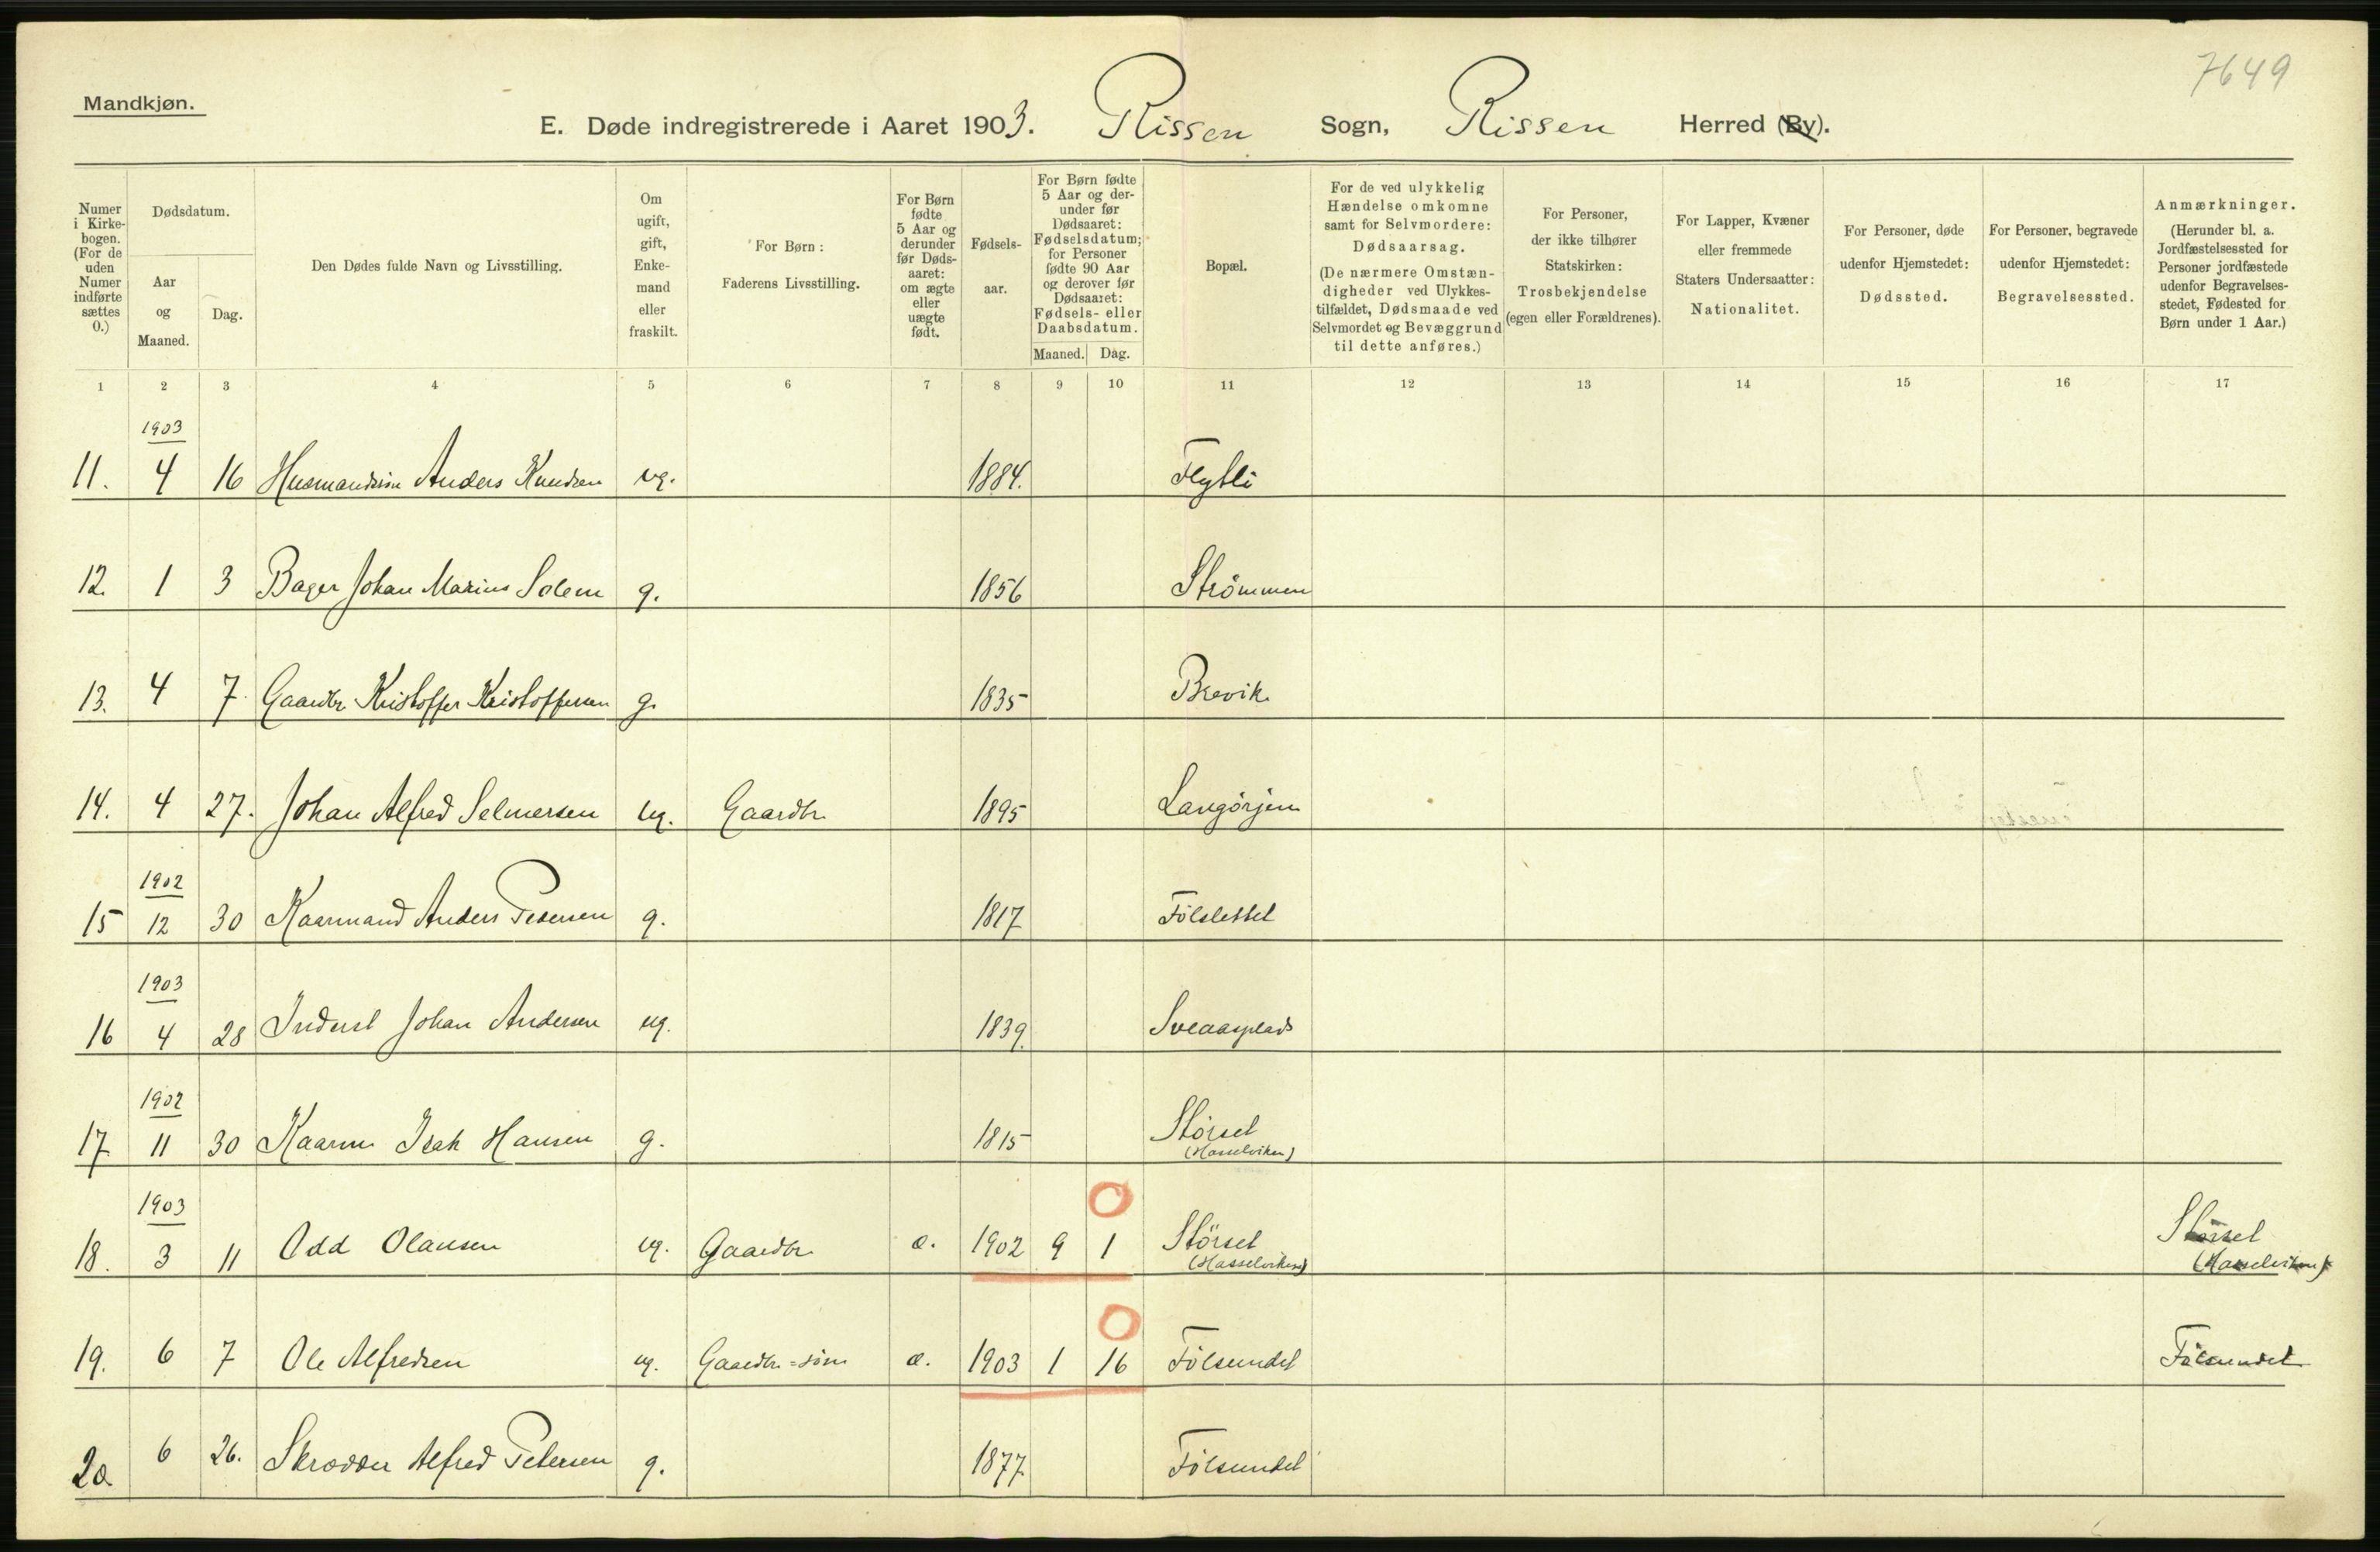 7649
Mandkjøn.
E. Døde indregistrerede i Aaret 1903. Rissen Sogn, Rissen Herred (By).
Numer i Kirkebogen. (For de uden Numer indførte sættes 0.)
Dødsdatum.
Aar og Maaned.
Dag.
Den Dødes fulde Navn og Livsstilling.
Om ugift, gift, Enkemand eller fraskilt.
For Børn: Faderens Livsstilling.
For Børn fødte 5 Aar og derunder før Dødsaaret: om ægte eller uægte født.
Fødselsaar.
For Børn fødte 5 Aar og derunder før Dødsaaret: Fødselsdatum; for Personer fødte 90 Aar og derover før Dødsaaret: Fødsels- eller Daabsdatum.
Maaned. Dag.
Bopæl.
For de ved ulykkelig Hændelse omkomne samt for Selvmordere: Dødsaarsag. (De nærmere Omstændigheder ved Ulykkestilfældet, Dødsmaade ved Selvmordet og Bevæggrund til dette anføres.)
For Personer, der ikke tilhører Statskirken: Trosbekjendelse (egen eller Forældrenes).
For Lapper, Kvæner eller fremmede Staters Undersaatter: Nationalitet.
For Personer, døde udenfor Hjemstedet: Dødssted.
For Personer, begravede udenfor Hjemstedet: Begravelsessted.
Anmærkninger. (Herunder bl. a. Jordfæstelsessted for Personer jordfæstede udenfor Begravelsesstedet, Fødested for Børn under 1 Aar.)
1 2 3 4 5 6 7 8 9 10 11 12 13 14 15 16 17
1903
11. 4 16 Husmandssøn Anders Knudsen ug. 1884. Flytli
12. 1 3 Bager Johan Marius Solem g. 1856 Strömmen
13. 4 7. Gaardbr Kristoffer Kristoffersen g. 1835 Brevik
14. 4 27. Johan Alfred Selmersen ug. Gaardbr 1895 Langörjen
1902
15 12 30 Kaarmand Anders Pedersen g. 1817 Fölslettet
1903
16 4 28 Inderst Johan Andersen ug. 1839. Sveaasplads
1902
17. 11 30 Kaarm Isak Hansen g. 1815 Störset
(Hasselviken)
1903 0
18. 3 11 Odd Olausen ug. Gaardbr æ. 1902 9 1 Störset Störset
(Hasselviken) (Hasselviken)
0
19. 6 7 Ole Alfredsen ug. Gaardbr=søn æ. 1903 1 16 Fölsundet Fölsundet
20 6 26. Skrædder Alfred Petersen g. 1877. Fölsundet